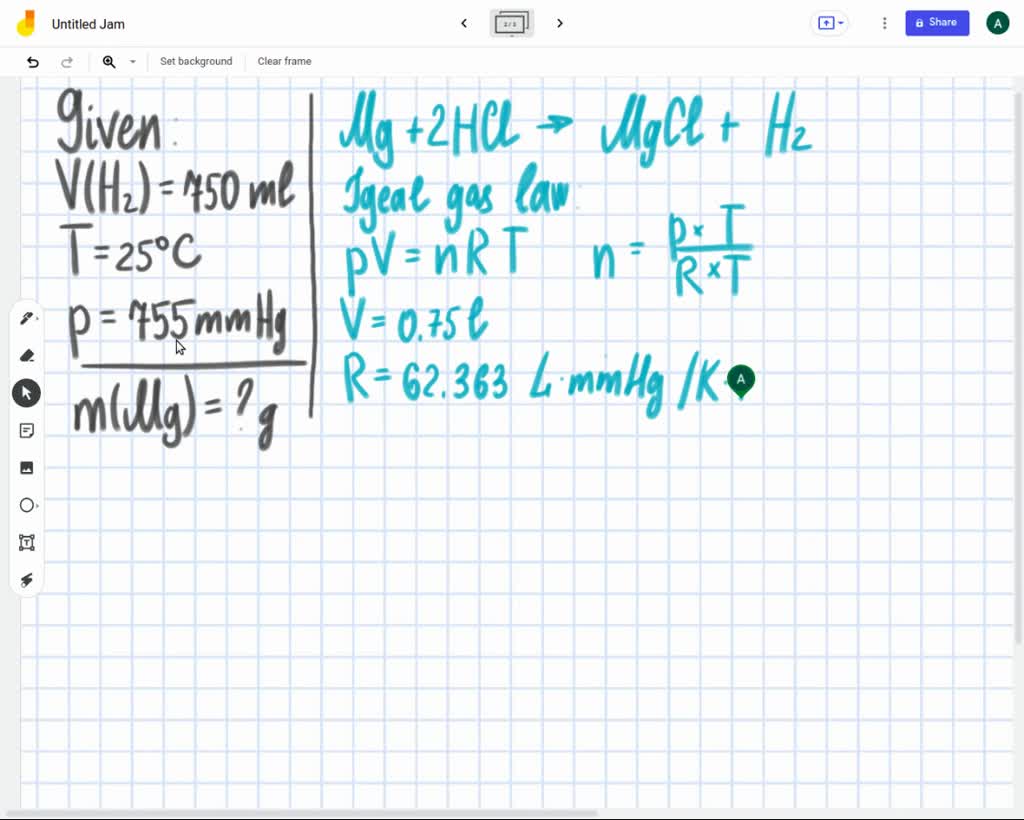 Untitled Jam
2 / 2
Share
A
Set background
Clear frame
Given:
V(H₂) = 750 ml
T = 25°C
p = 755 mmHg
m(Mg) = ? g
Mg + 2HCl → MgCl + H₂
Igeal gas law:
pV = nRT n = p × T / R × T
V = 0.75 l
R = 62.363 L·mmHg /K·
A